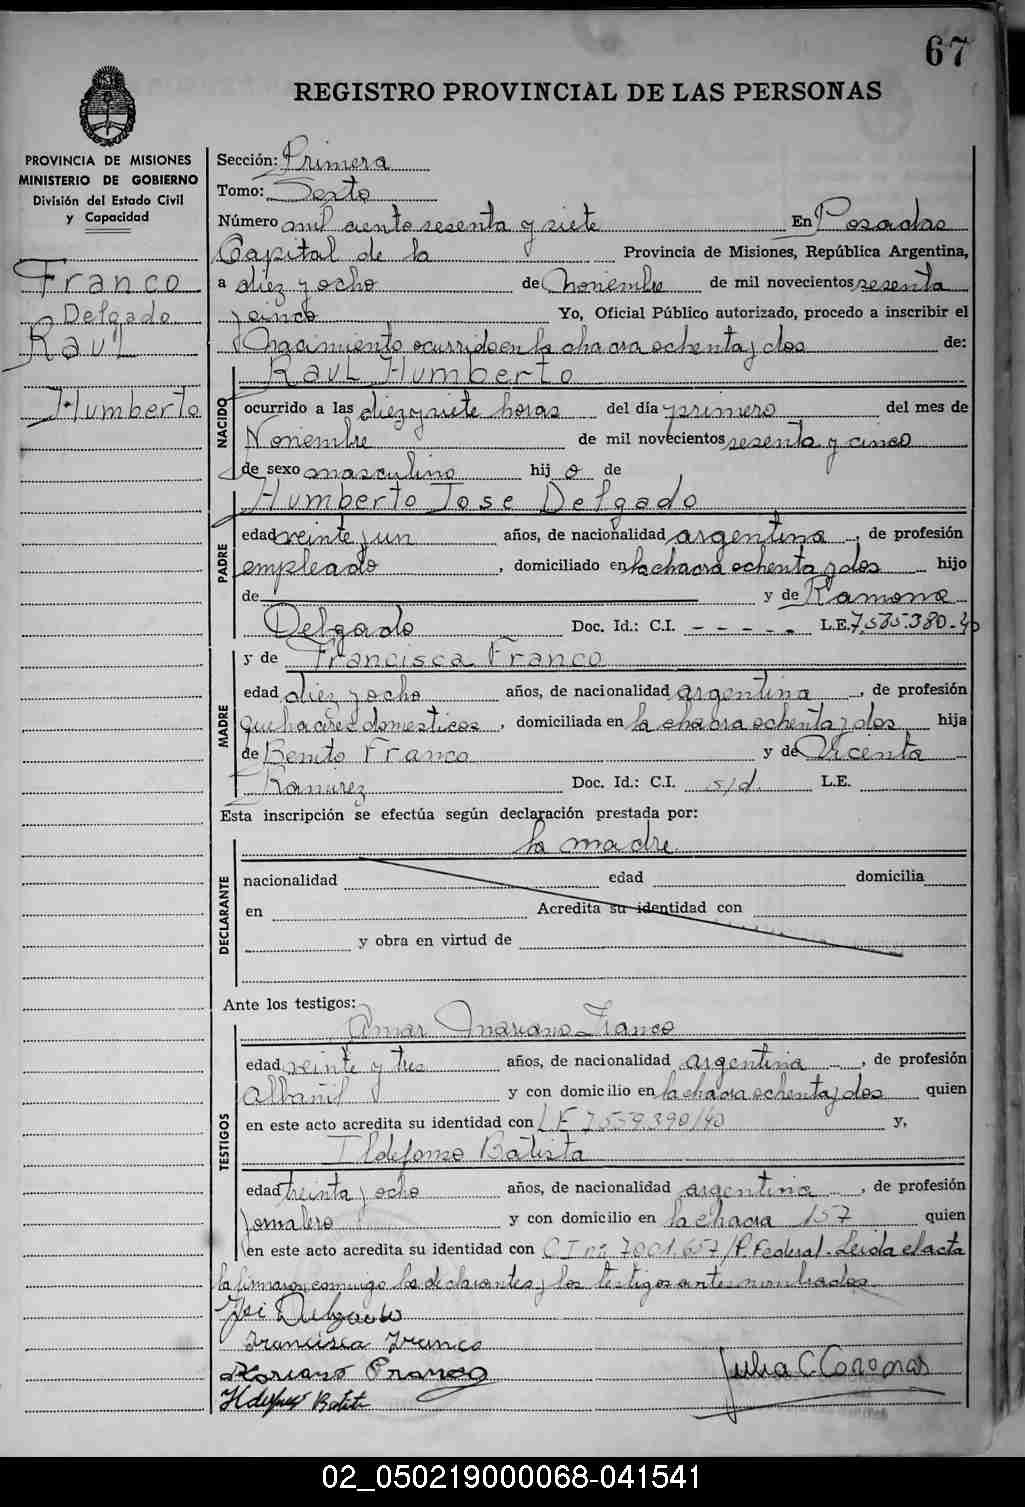 67
REGISTRO PROVINCIAL DE LAS PERSONAS
PROVINCIA DE MISIONES
MINISTERIO DE GOBIERNO
División del Estado Civil
y Capacidad
Franco
Delgado
Raul
Humberto
Sección: Primera
Tomo: Sexto
Número mil ciento sesenta y siete En Posadas
Capital de la Provincia de Misiones, República Argentina,
a diez y ocho de Noviembre de mil novecientos sesenta
y cinco Yo, Oficial Público autorizado, procedo a inscribir el
Nacimiento ocurrido en la chacra ochenta y dos de:
NACIDO
Raul Humberto
ocurrido a las diez y siete horas del día primero del mes de
Noviembre de mil novecientos sesenta y cinco
de sexo masculino hij o de
PADRE
Humberto Jose Delgado
edad veinte y un años, de nacionalidad argentina, de profesión
empleado, domiciliado en la chacra ochenta y dos hijo
de y de Ramona
Delgado Doc. Id.: C.I. - - - - - L.E. 7.585.380-40
MADRE
y de Francisca Franco
edad diez y ocho años, de nacionalidad argentina, de profesión
quehaceres domesticos, domiciliada en la chacra ochenta y dos hija
de Benito Franco y de Vicenta
Ramirez Doc. Id.: C.I. s/d. L.E.
Esta inscripción se efectúa según declaración prestada por:
la madre
DECLARANTE
nacionalidad edad domicilia
en Acredita su identidad con
y obra en virtud de
Ante los testigos:
TESTIGOS
Omar Mariano Franco
edad veinte y tres años, de nacionalidad argentina, de profesión
Albañil y con domicilio en la chacra ochenta y dos quien
en este acto acredita su identidad con L.E 7.559.390/40 y,
Ildefonso Batista
edad treinta y ocho años, de nacionalidad argentina, de profesión
Jornalero y con domicilio en la chacra 157 quien
en este acto acredita su identidad con C.I nº 7001.657/P. Federal. Leida el acta
la firmaron conmigo los declarantes y los testigos antes nombrados
Delgado
Francisca Franco
Mariano Franco
Julia C Coronas
Batista
02_050219000068-041541